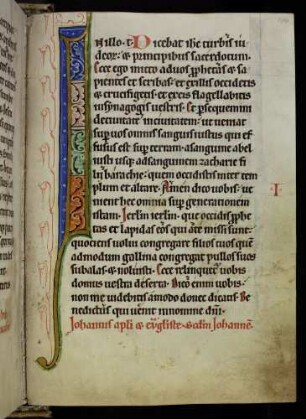 N illo t Dicebat ihc turbis iu
deor & principibus sacerdotum.
Ecce ego mitto ad uos prophetas & sa
pientes et scribas et ex illis occidetis
& crucifigetis et ex eis flagellabitis
in synagogis uestris. Et persequemini
de ciuitate in ciuitatem ut ueniat
sup uos omnis sanguis iustus qui ef
fusus est sup terram a sanguine abel
iusti usq ad sanguinem zacharie fi
lii barachie quem occidistis inter tem
plum et altare. Amen dico uobis ue
nient hec omnia sup generationem
istam. Jerlm ierlm que occidis pphe
tas et lapidas eos qui ad te missi sunt
quociens uolui congregare filios tuos quem
admodum gallina congregat pullos suos
sub alas & noluisti. Ecce relinquetur uobis
domus uestra deserta. Dico enim uobis
non me uidebitis amodo donec dicatis Be
nedictus qui uenit in nomine dni.
Johannis apli & eugliste. Scdm Johannem.